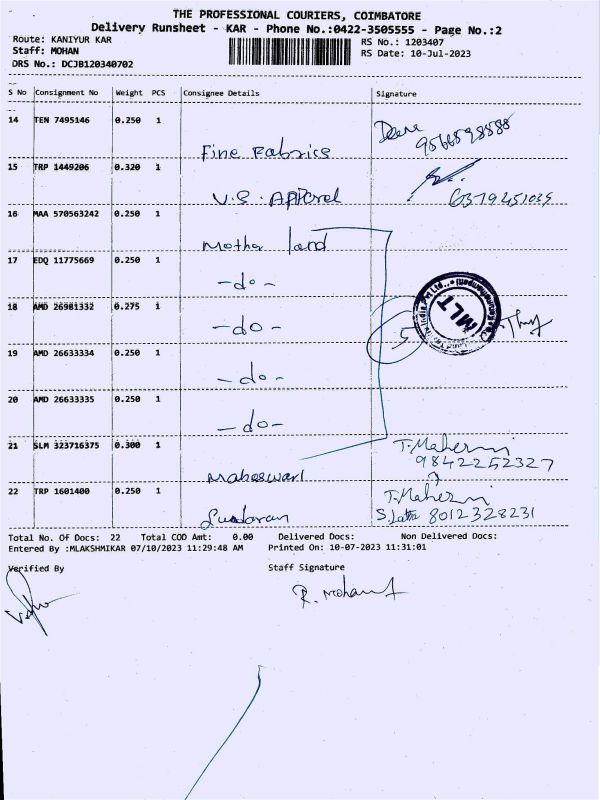 THE PROFESSIONAL COURIERS, COIMBATORE
Delivery Runsheet - KAR - Phone No.:0422-3505555 - Page No.:2
Route: KANIYUR KAR
Staff: MOHAN
DRS No.: DCJB120340702
RS No.: 1203407
RS Date: 10-Jul-2023
S No Consignment No Weight PCS Consignee Details Signature
14 TEN 7495146 0.250 1
Fine Fabrics 9566598588
15 TRP 1449206 0.320 1
V.S. Apparel 6379451035
16 MAA 570563242 0.250 1
Mother land
17 EDQ 11775669 0.250 1
-do-
18 AMD 26981332 0.275 1
-do- 5 MLT
19 AMD 26633334 0.250 1
-do-
20 AMD 26633335 0.250 1
-do-
21 SLM 323716375 0.300 1
Maheswari 9842252327
22 TRP 1601400 0.250 1
8012328231
Total No. Of Docs: 22 Total COD Amt: 0.00 Delivered Docs: Non Delivered Docs:
Entered By :MLAKSHMIKAR 07/10/2023 11:29:48 AM Printed On: 10-07-2023 11:31:01
Verified By Staff Signature
R. Mohan